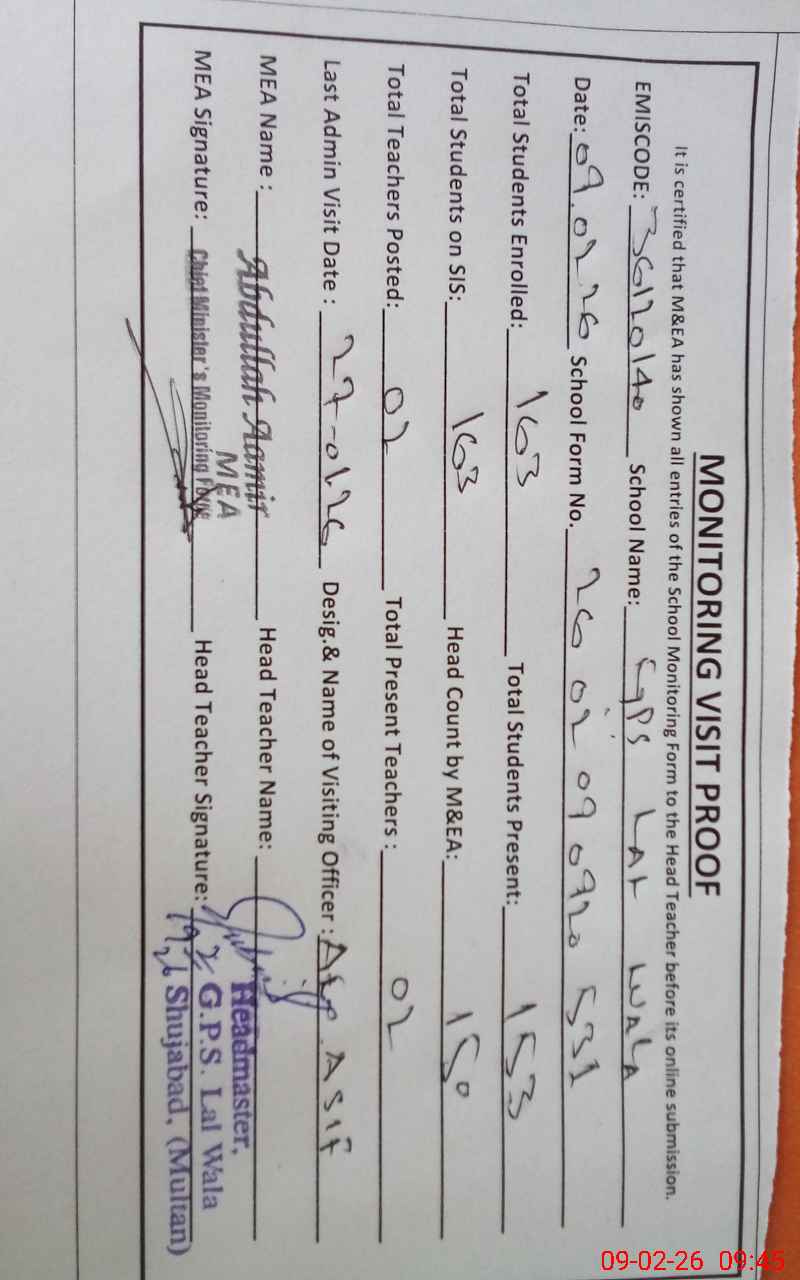 MONITORING VISIT PROOF
It is certified that M&EA has shown all entries of the School Monitoring Form to the Head Teacher before its online submission.
EMISCODE: 36120140 School Name: GPS LAL WALA
Date: 09.02.26 School Form No. 26 02 09 0920 531
Total Students Enrolled: 163 Total Students Present: 153
Total Students on SIS: 163 Head Count by M&EA: 150
Total Teachers Posted: 02 Total Present Teachers : 02
Last Admin Visit Date : 27-01-26 Desig.& Name of Visiting Officer : ASIF
MEA Name : Abdullah Aamir Head Teacher Name:
MEA
MEA Signature: Chief Minister's Monitoring Force Head Teacher Signature:
Headmaster,
G.P.S. Lal Wala
Shujabad, (Multan)
09-02-26 09:45